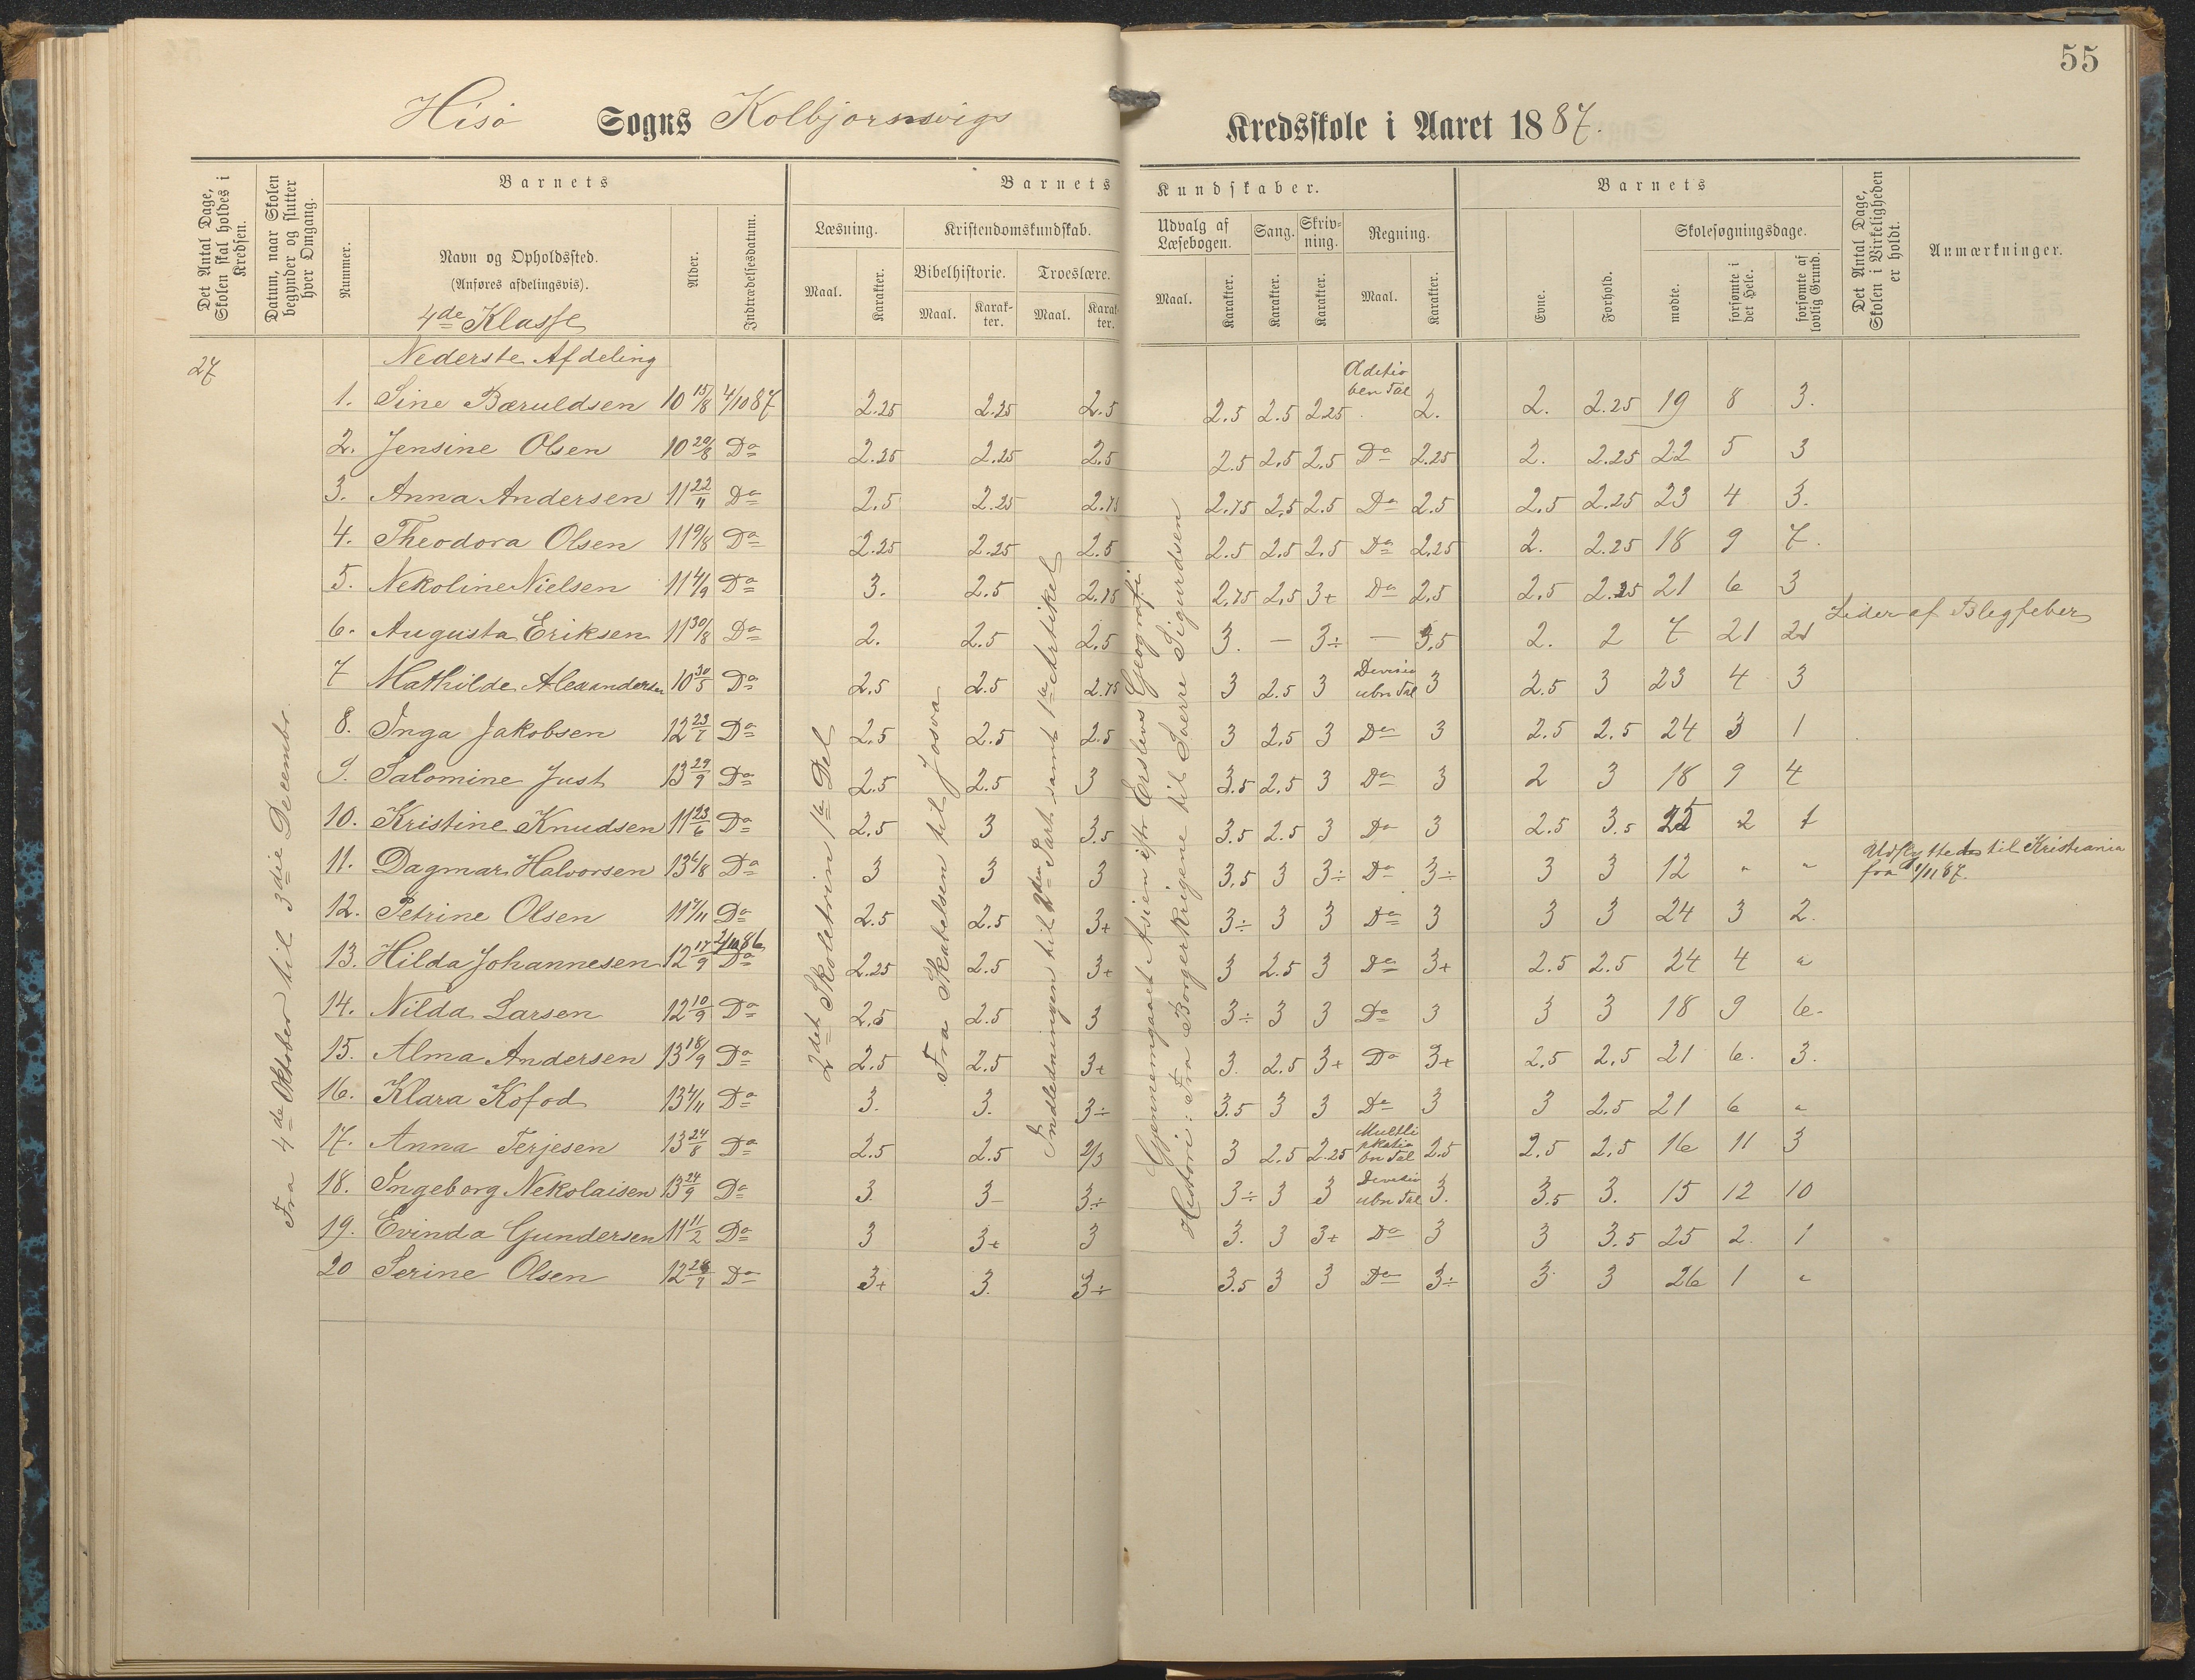 55
Hisø Sogns Kolbjørnsvigs Kredsskole i Aaret 1887.
Det Antal Dage, Skolen skal holdes i Kredsen.
Datum, naar Skolen begynder og slutter hver Omgang.
Barnets
Nummer.
Navn og Opholdssted.
(Anføres afdelingsvis).
4de Klasse
Alder.
Indtrædelsesdatum.
Barnets Kundskaber.
Læsning.
Maal. Karakter.
Kristendomskundskab.
Bibelhistorie. Troeslære.
Maal. Karakter. Maal. Karakter.
Udvalg af Læsebogen. Sang. Skrivning. Regning.
Maal. Karakter. Karakter. Karakter. Maal. Karakter.
Barnets
Evne. Forhold.
Skolesøgningsdage.
mødte. forsømte i det Hele. forsømte af lovlig Grund.
Det Antal Dage, Skolen i Virkeligheden er holdt.
Anmærkninger.
27
Nederste Afdeling
Fra 4de Oktober til 3die Decembr.
2det Skoletrin 1ste Del
Fra Skabelsen til Josva
Indledningen til 2den Part samt 1ste Artikel
Gjennemgaaet Asien efter Erslevs Geografi
Histori: Fra Borgerkrigene til Sverre Sigurdsen
1. Sine Bæruldsen 10 15/8 4/10 87 2.25 2.25 2.5 2.5 2.5 2.25 Aditio ben Tal 2. 2. 2.25 19 8 3.
2. Jensine Olsen 10 20/8 Do 2.25 2.25 2.5 2.5 2.5 2.5 Do 2.25 2. 2.25 22 5 3
3. Anna Andersen 11 22/11 Do 2.5 2.25 2.75 2.75 2.5 2.5 Do 2.5 2.5 2.25 23 4 3.
4. Theodora Olsen 11 9/8 Do 2.25 2.25 2.5 2.5 2.5 2.5 Do 2.25 2. 2.25 18 9 7.
5. Nekoline Nielsen 11 4/9 Do 3. 2.5 2.75 2.75 2.5 3+ Do 2.5 2.5 2.25 21 6 3
6. Augusta Eriksen 11 30/8 Do 2. 2.5 2.5 3. — 3÷ — 3.5 2. 2 7 21 21 Lider af Blegfeber
7 Mathilde Alexandersen 10 30/5 Do 2.5 2.5 2.75 3 2.5 3 Divisio ubn Tal 3 2.5 3 23 4 3
8. Inga Jakobsen 12 23/1 Do 2.5 2.5 2.5 3 2.5 3 Do 3 2.5 2.5 24 3 1
9. Salomine Just 13 29/9 Do 2.5 2.5 3 3.5 2.5 3 Do 3 2 3 18 9 4
10. Kristine Knudsen 11 23/6 Do 2.5 3 3.5 3.5 2.5 3 Do 3 2.5 3.5 25 2 1
11. Dagmar Halvorsen 13 6/8 Do 3 3 3 3.5 3 3÷ Do 3÷ 3 3 12 " " Udflyttedes til Kristiania fra 1/11 87.
12. Petrine Olsen 11 7/11 Do 2.5 2.5 3+ 3÷ 3 3 Do 3 3 3 24 3 2.
13. Hilda Johannesen 12 17/9 2/10 86 Do 2.25 2.5 3+ 3 2.5 3 Do 3+ 2.5 2.5 24 4 "
14. Nilda Larsen 12 10/9 Do 2.5 2.5 3 3÷ 3 3 Do 3 3 3 18 9 6.
15. Alma Andersen 13 18/9 Do 2.5 2.5 3+ 3. 2.5 3+ Do 3+ 2.5 2.5 21 6. 3.
16. Klara Kofod 13 4/11 Do 3. 3. 3÷ 3.5 3 3 Do 3 3 2.5 21 6 "
17. Anna Terjesen 13 24/8 Do 2.5 2.5 2/3 3 2.5 2.25 Multiplikatio bn Tal 2.5 2.5 2.5 16 11 3
18. Ingeborg Nekolaisen 13 24/9 Do 3. 3- 3÷ 3÷ 3 3 Divisio ubn Tal 3. 3.5 3. 15 12 10
19. Evinda Gundersen 11 11/2 Do 3 3+ 3 3. 3 3+ Do 3 3 3.5 25 2. 1
20 Serine Olsen 12 28/7 Do 3+ 3. 3÷ 3.5 3 3 Do 3÷ 3 3 26 1 "